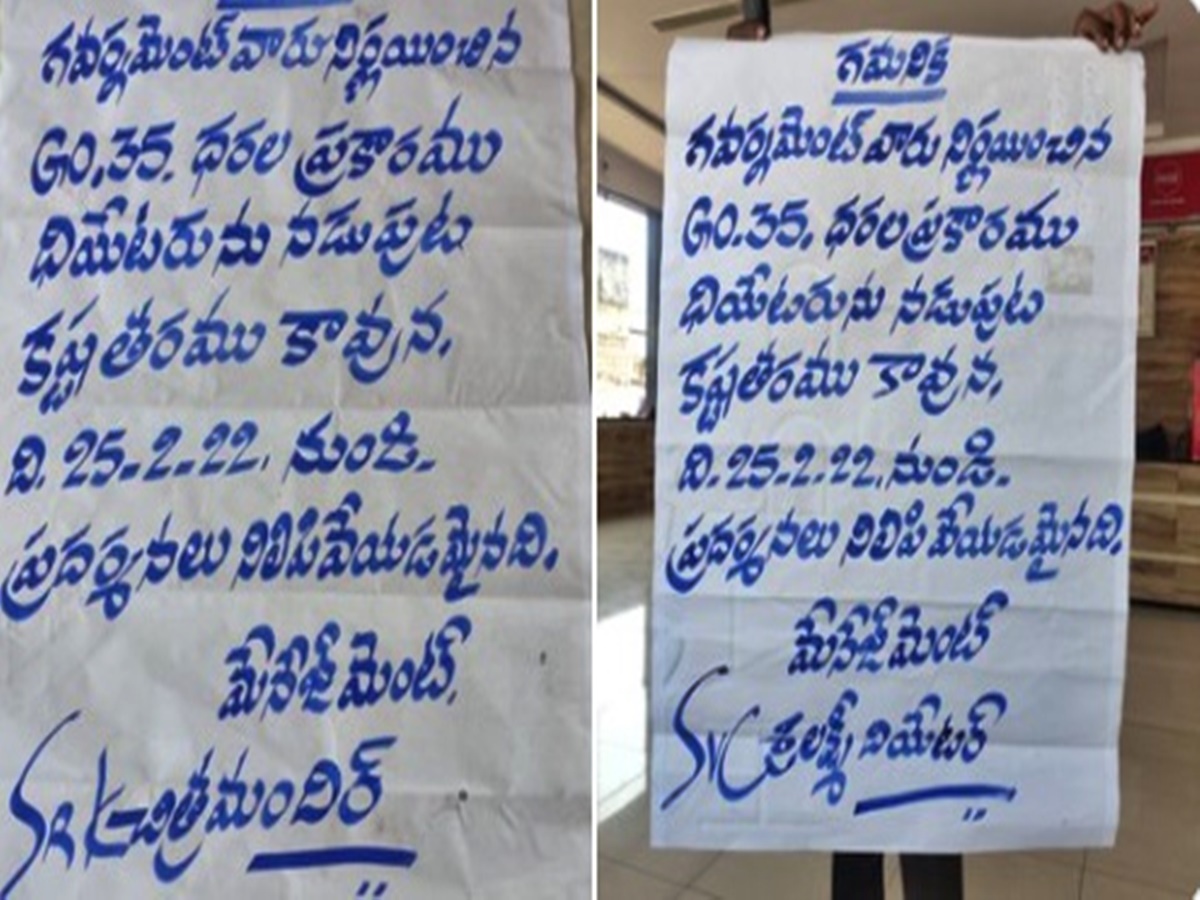 గవర్నమెంట్ వారు నిర్ణయించిన
GO.35. ధరల ప్రకారము
థియేటరును నడుపుట
కష్టతరము కావున,
ది. 25-2-22. నుండి.
ప్రదర్శనలు నిలిపివేయడమైనది.
మేనేజ్ మెంట్.
SRK-చిత్రమందిర్
గమనిక
గవర్నమెంట్ వారు నిర్ణయించిన
GO.35. ధరల ప్రకారము
థియేటరును నడుపుట
కష్టతరము కావున,
ది. 25-2-22. నుండి.
ప్రదర్శనలు నిలిపివేయడమైనది.
మేనేజ్ మెంట్
SVC శ్రీలక్ష్మీ థియేటర్